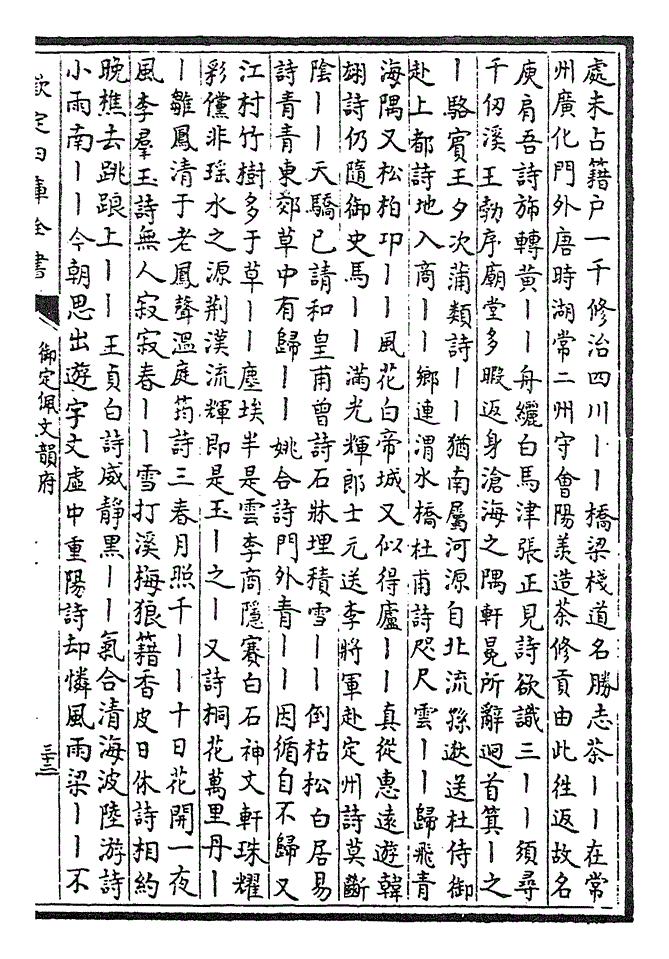 處未占籍户一千修治四川丨丨橋梁棧道名勝志茶丨丨在常
州廣化門外唐時湖常二州守會陽羨造茶修貢由此徃返故名
庾肩吾詩斾轉黄丨丨舟纚白馬津張正見詩欲識三丨丨須尋
千仭溪王勃序廟堂多暇返身滄海之隅軒冕所辭迴首箕丨之
丨駱賓王夕次蒲類詩丨丨猶南屬河源自北流孫逖送杜侍御
赴上都詩地入商丨丨鄉連渭水橋杜甫詩咫尺雲丨丨歸飛青
海隅又松柏邛丨丨風花白帝城又似得廬丨丨真從惠遠遊韓
翃詩仍隨御史馬丨丨滿光輝郎士元送李將軍赴定州詩莫斷
陰丨丨天驕已請和皇甫曾詩石牀埋積雪丨丨倒枯松白居易
詩青青東郊草中有歸丨丨姚合詩門外青丨丨因循自不歸又
江村竹樹多于草丨丨塵埃半是雲李商隱賽白石神文軒珠耀
彩儻非瑶水之源荆漢流輝即是玉丨之丨又詩桐花萬里丹丨
丨雛鳳清于老鳳聲温庭筠詩三春月照千丨丨十日花開一夜
風李羣玉詩無人寂寂春丨丨雪打溪梅狼籍香皮日休詩相約
晚樵去跳踉上丨丨王貞白詩威靜黑丨丨氣合清海波陸游詩
小雨南丨丨今朝思出遊宇文虚中重陽詩却憐風雨梁丨丨不
欽定四庫全書
御定佩文韻府
三十三